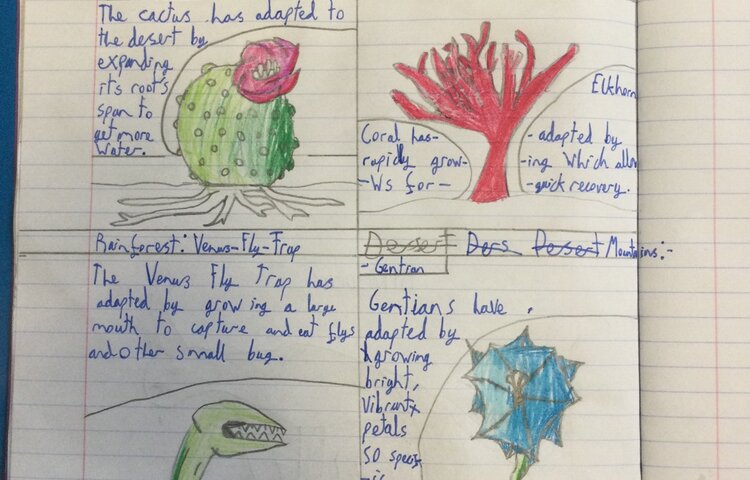 The cactus has adapted to
the desert by
expanding
its root's
span to
get more
water.
Elkhorn
Coral has- - adapted by
rapidly grow- -ing which allow
-ws for - -quick recovery.
Rainforest: Venus-Fly-Trap
The Venus Fly Trap has
adapted by growing a large
mouth to capture and eat flys
and other small bug.
Desert Ders Desert Mountains:-
- Gentian
Gentians have
adapted by
growing
bright,
Vibrant
petals
so